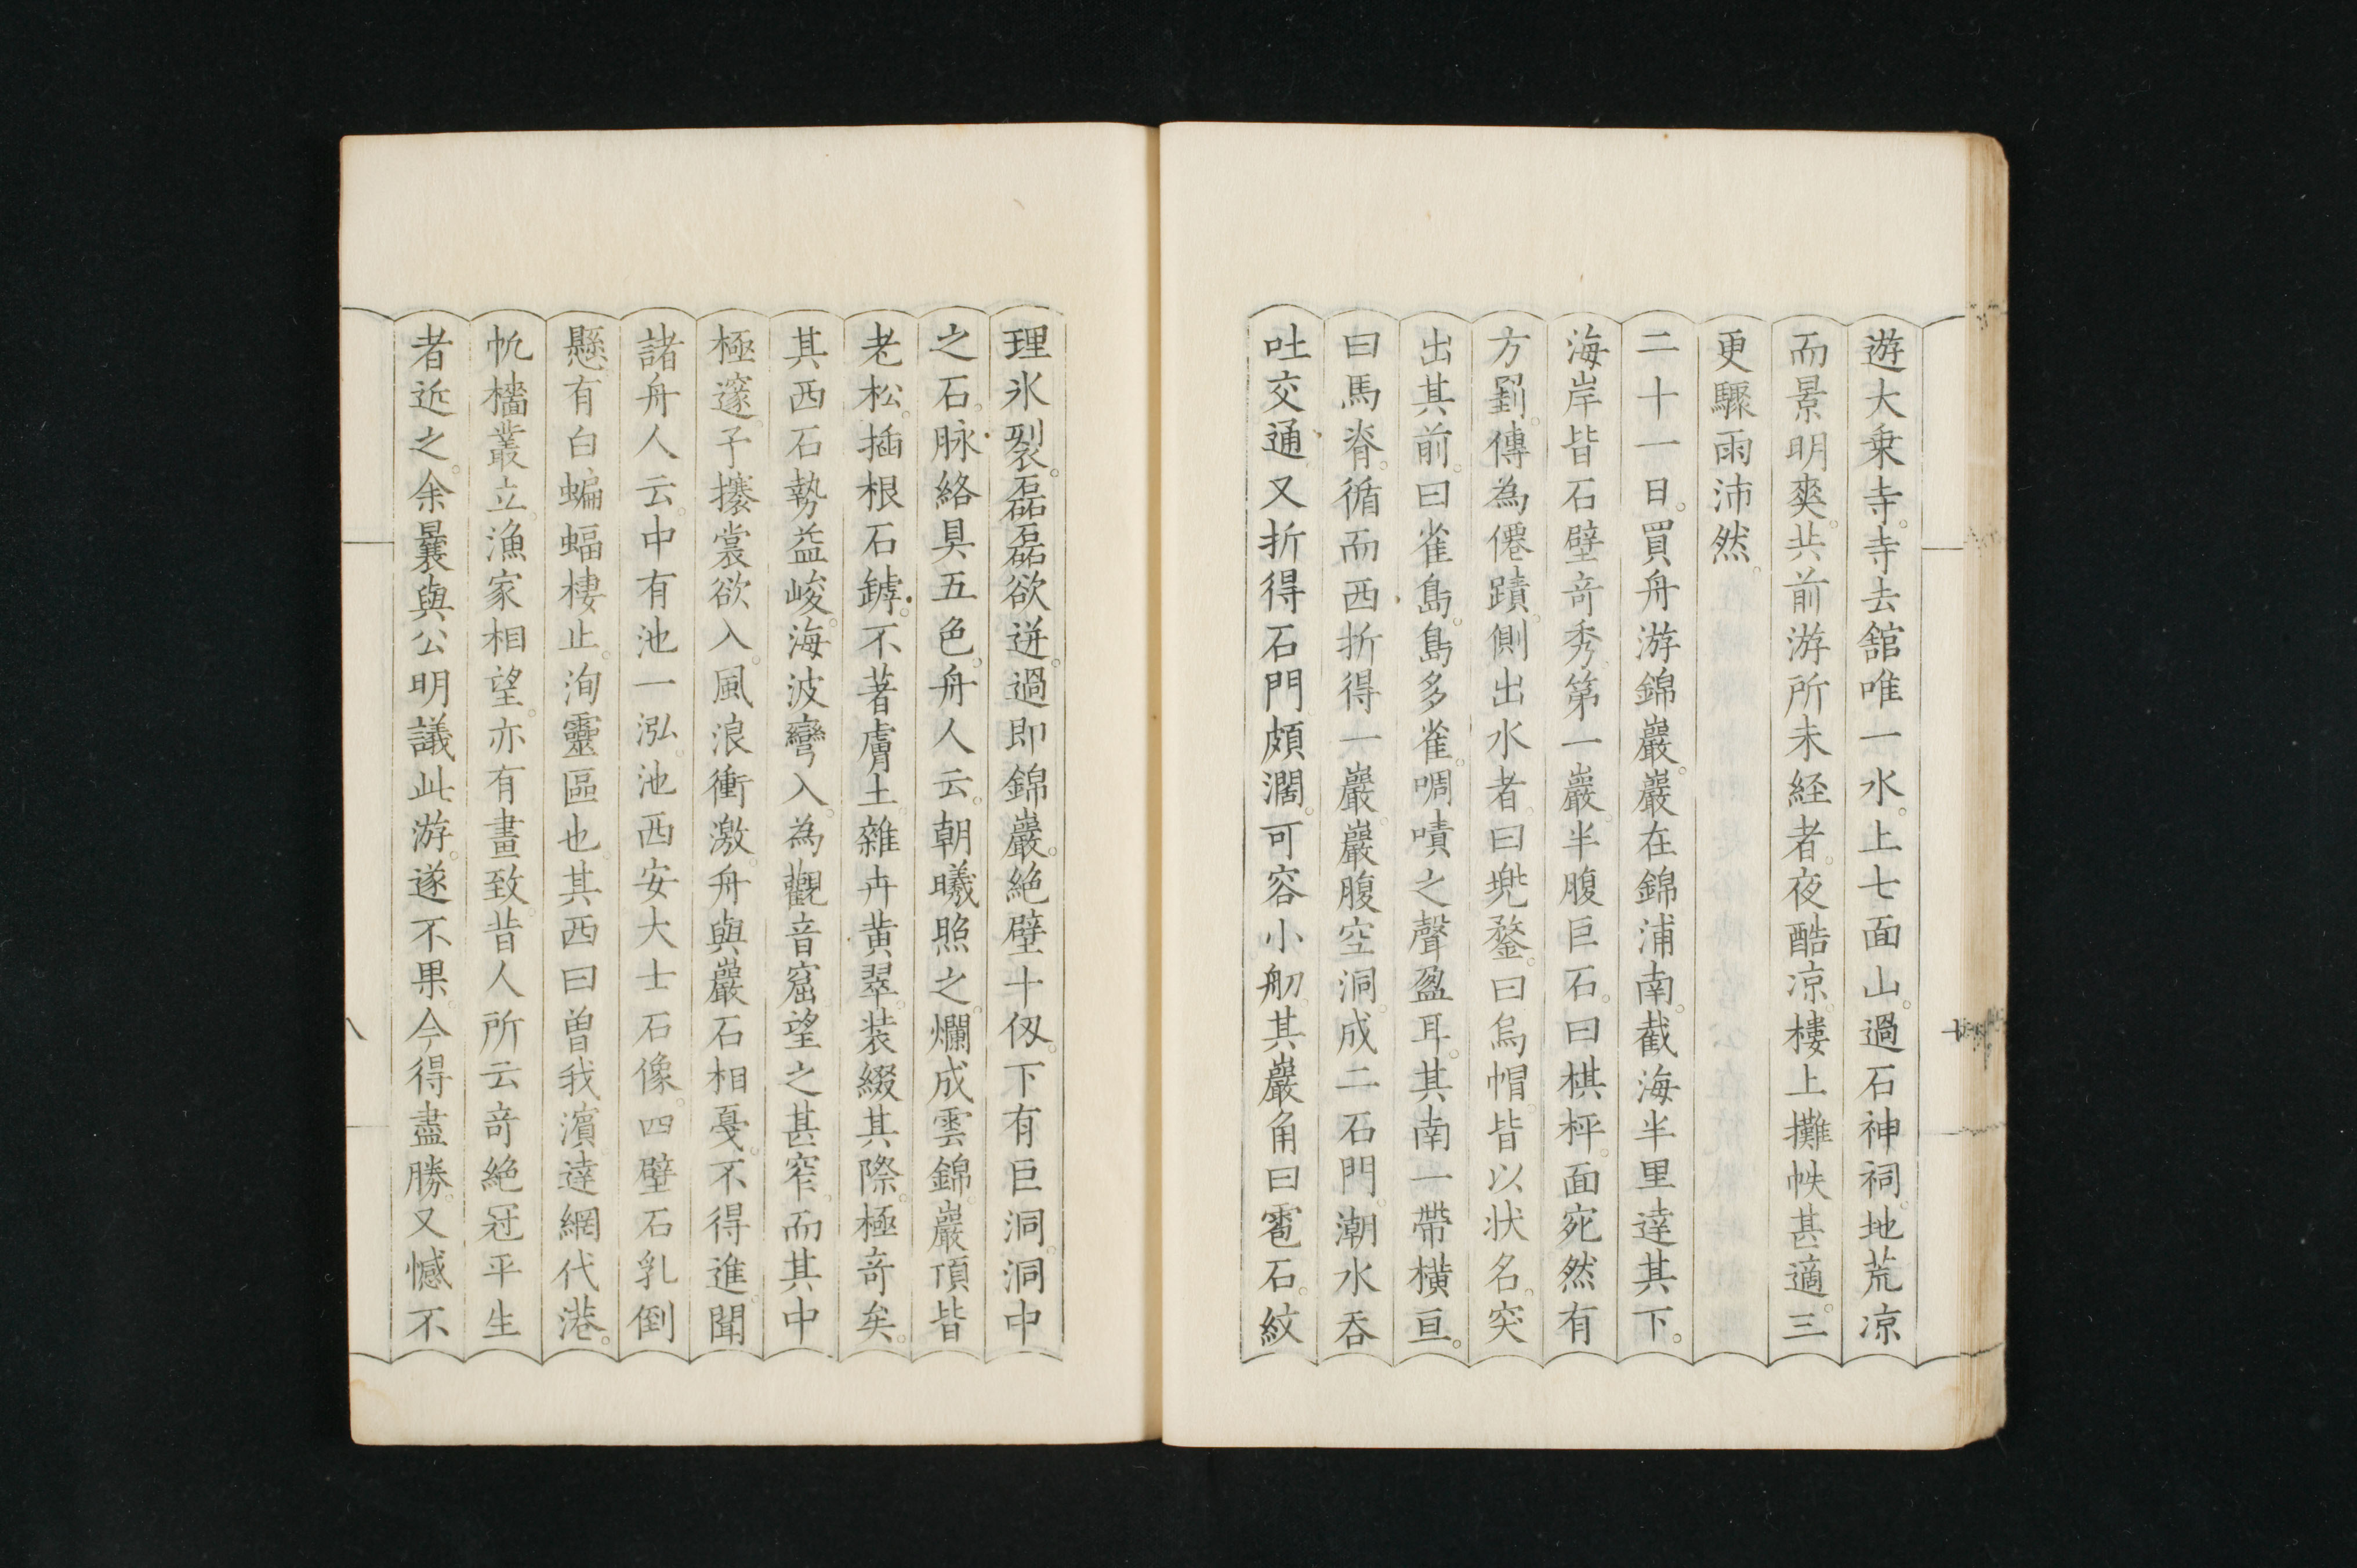 遊大乗寺。寺去舘唯一水。上七面山。過石神祠。地荒凉
而景明爽。共前游所未経者。夜酷凉。樓上攤帙甚適。三
更驟雨沛然。
二十一日。買舟游錦巖。巖在錦浦南。截海半里達其下。
海岸皆石壁竒秀。第一巖。半腹巨石。曰棋枰。面宛然有
方劃。傳為僊蹟。側出水者。曰兠鍪。曰烏帽。皆以状名。突
出其前。曰雀島。島多雀。啁嘖之聲盈耳。其南一帶横亘。
曰馬脊。循而西折得一巖。巖腹空洞。成二石門。潮水呑
吐交通。又折得石門頗濶。可容小舠。其巖角曰雹石。紋
理氷裂。磊磊欲迸。過即錦巖。絶壁十仭。下有巨洞。洞中
之石。脉絡具五色。舟人云。朝曦照之。爛成雲錦。巖頂皆
老松。插根石罅。不著膚土。雜卉黄翠。装綴其際。極竒矣。
其西石勢益峻。海波彎入。為觀音窟。望之甚窄。而其中
極邃。予攐裳欲入。風浪衝激。舟與巖石相戞。不得進。聞
諸舟人云。中有池一泓。池西安大士石像。四壁石乳倒
懸。有白蝙蝠棲止。洵靈區也。其西曰曽我濱。達網代港。
帆檣叢立。漁家相望。亦有畫致。昔人所云竒絶冠平生
者近之。余曩與公明議此游。遂不果。今得盡勝。又憾不
十
八